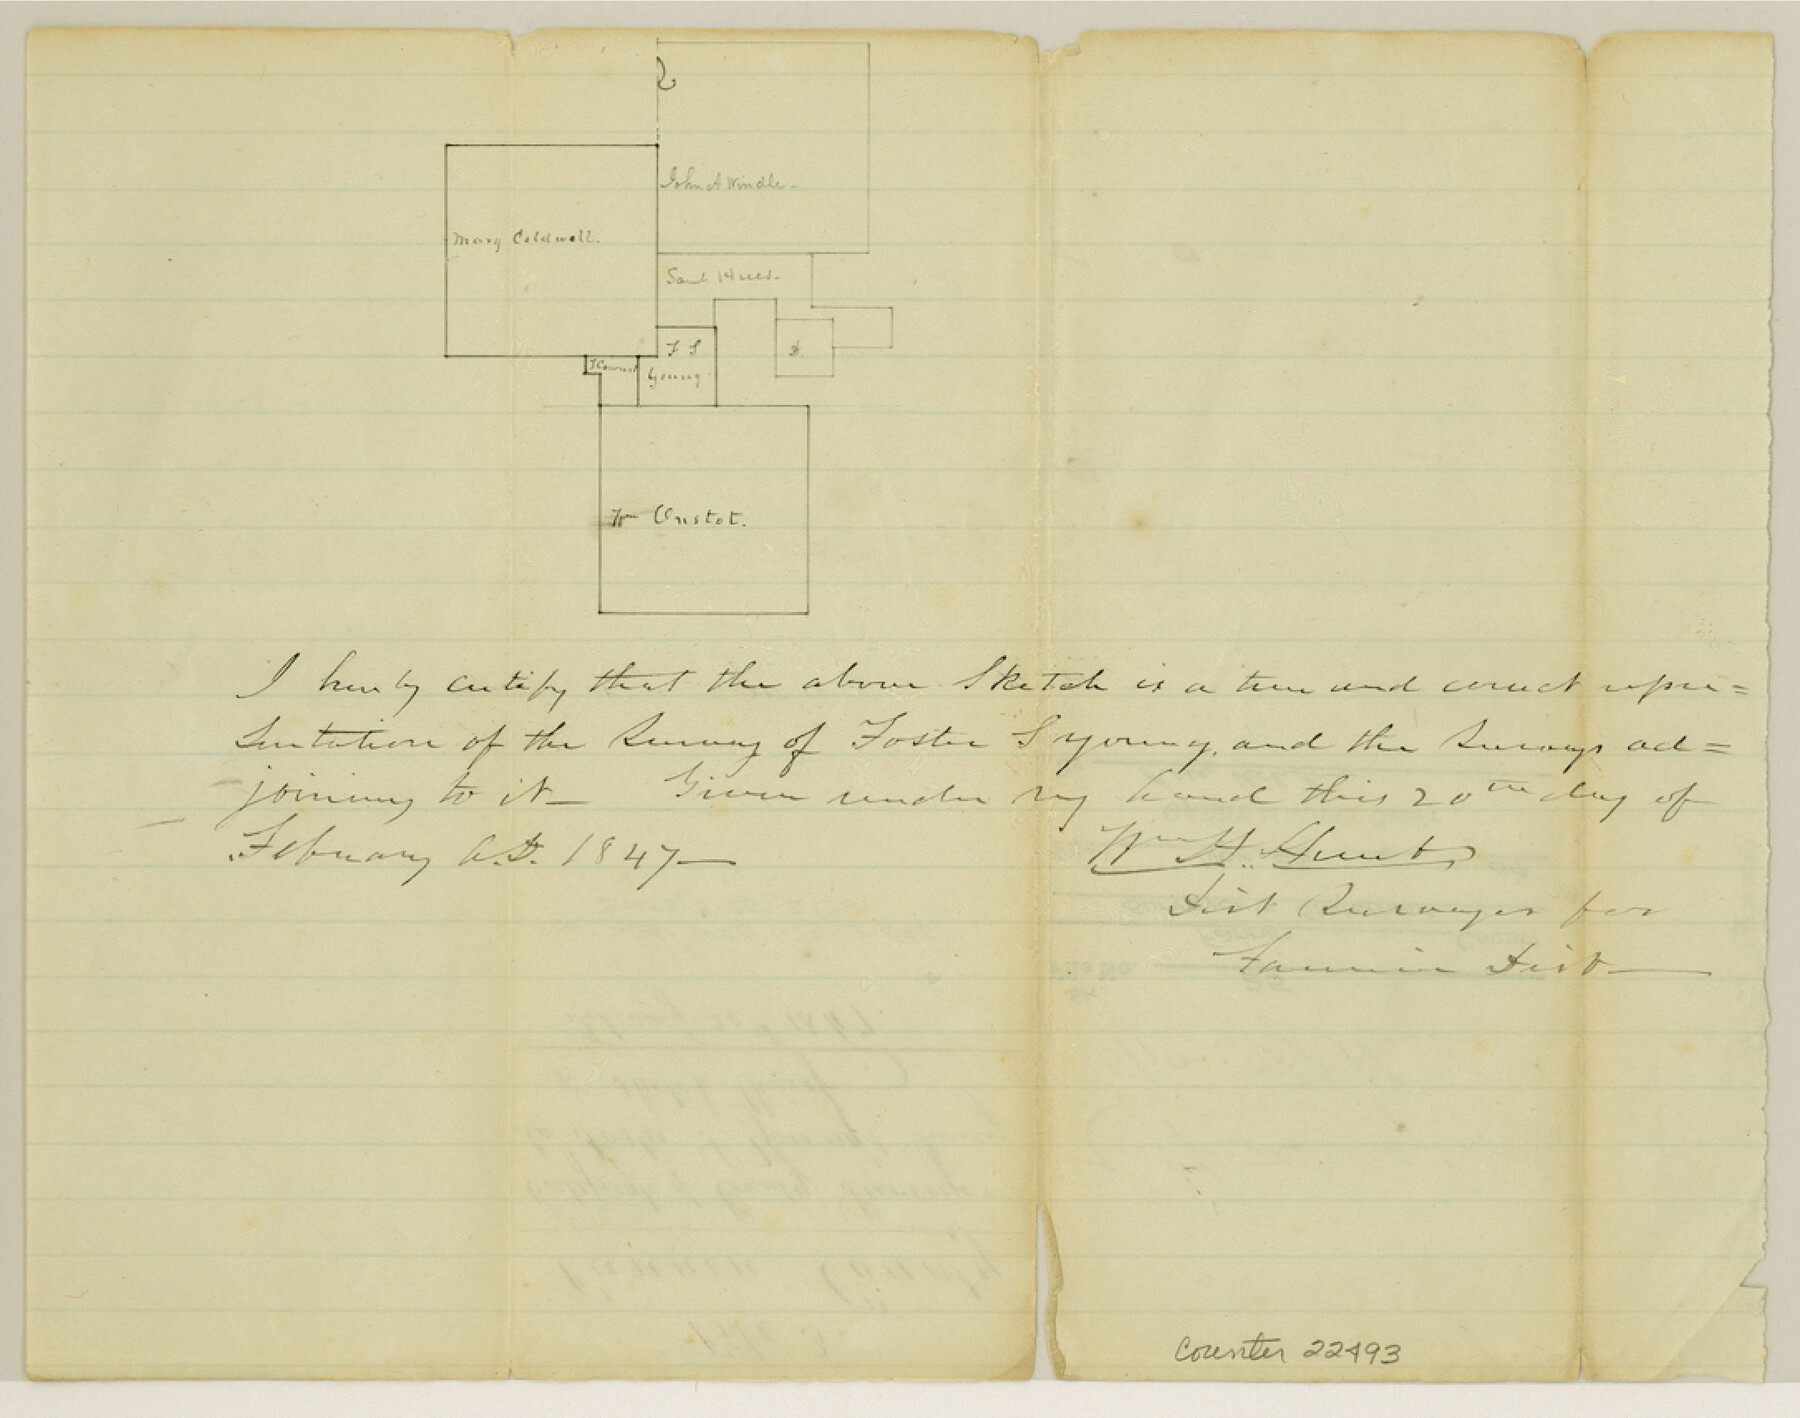 John A Windle.
Mary Coldwell.
F S
Young
Wm Onstot.
I hereby certify that the above Sketch is a true and correct repre=
sentation of the Survey of Foster S Young, and the Surveys ad=
joining to it— Given under my hand this 20th day of
February A.D. 1847—
Wm H. Hunt
Dist Surveyor for
Fannin Dist—
Counter 22493